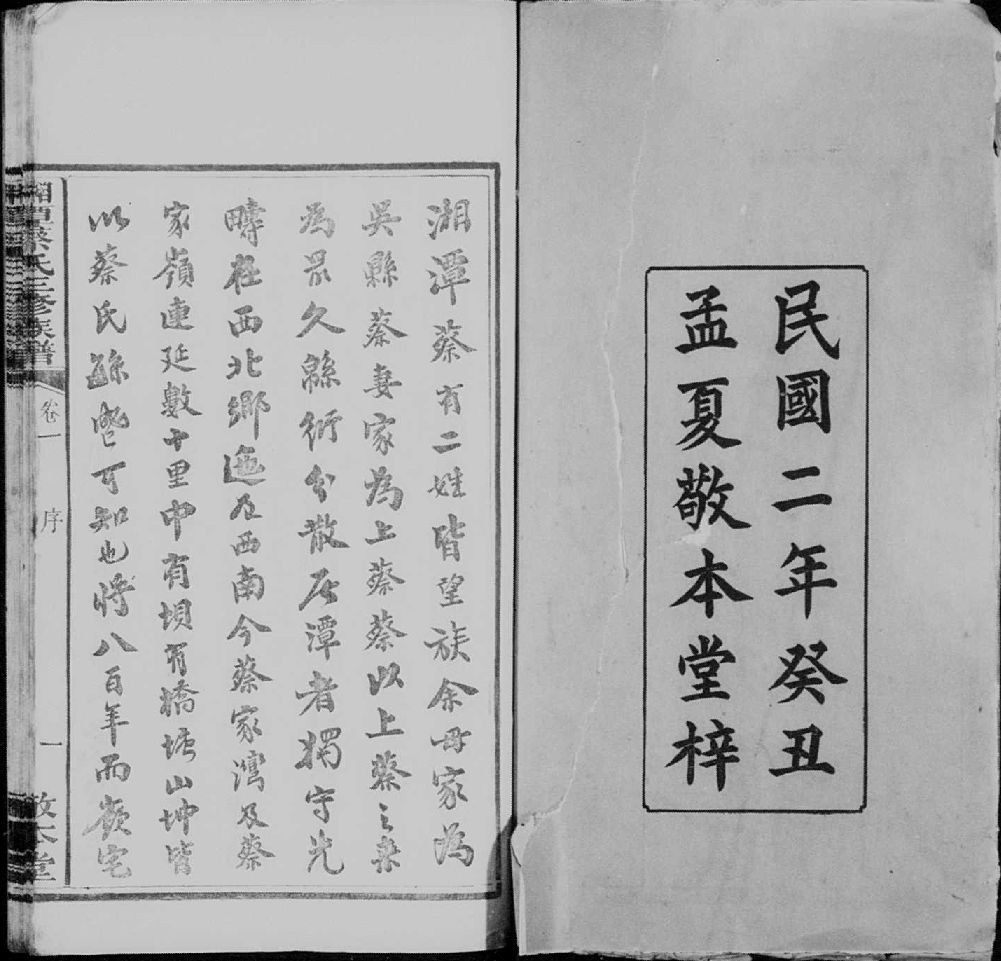 民國二年癸丑
孟夏敬本堂梓
湖潭蔡有二姓皆望族余母家為
吳縣蔡妻家為上蔡蔡以上蔡之來
為最久緜衍分散居潭者獨守先
疇在西北鄉迤及西南今蔡家灣及蔡
家嶺連延數十里中有壩有橋塘山坤皆
以蔡氏繇可知也將八百年而嶺宅
湘潭蔡氏三修族譜
卷一
序
一
敬本堂